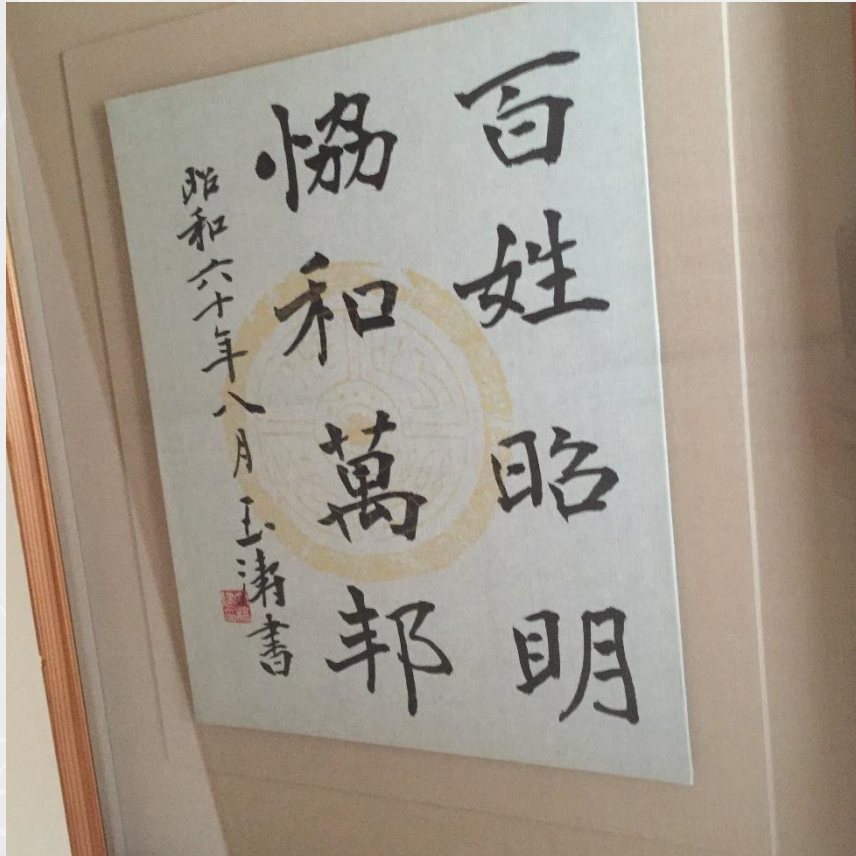 百姓昭明
恊和萬邦
昭和六十年八月玉涛書